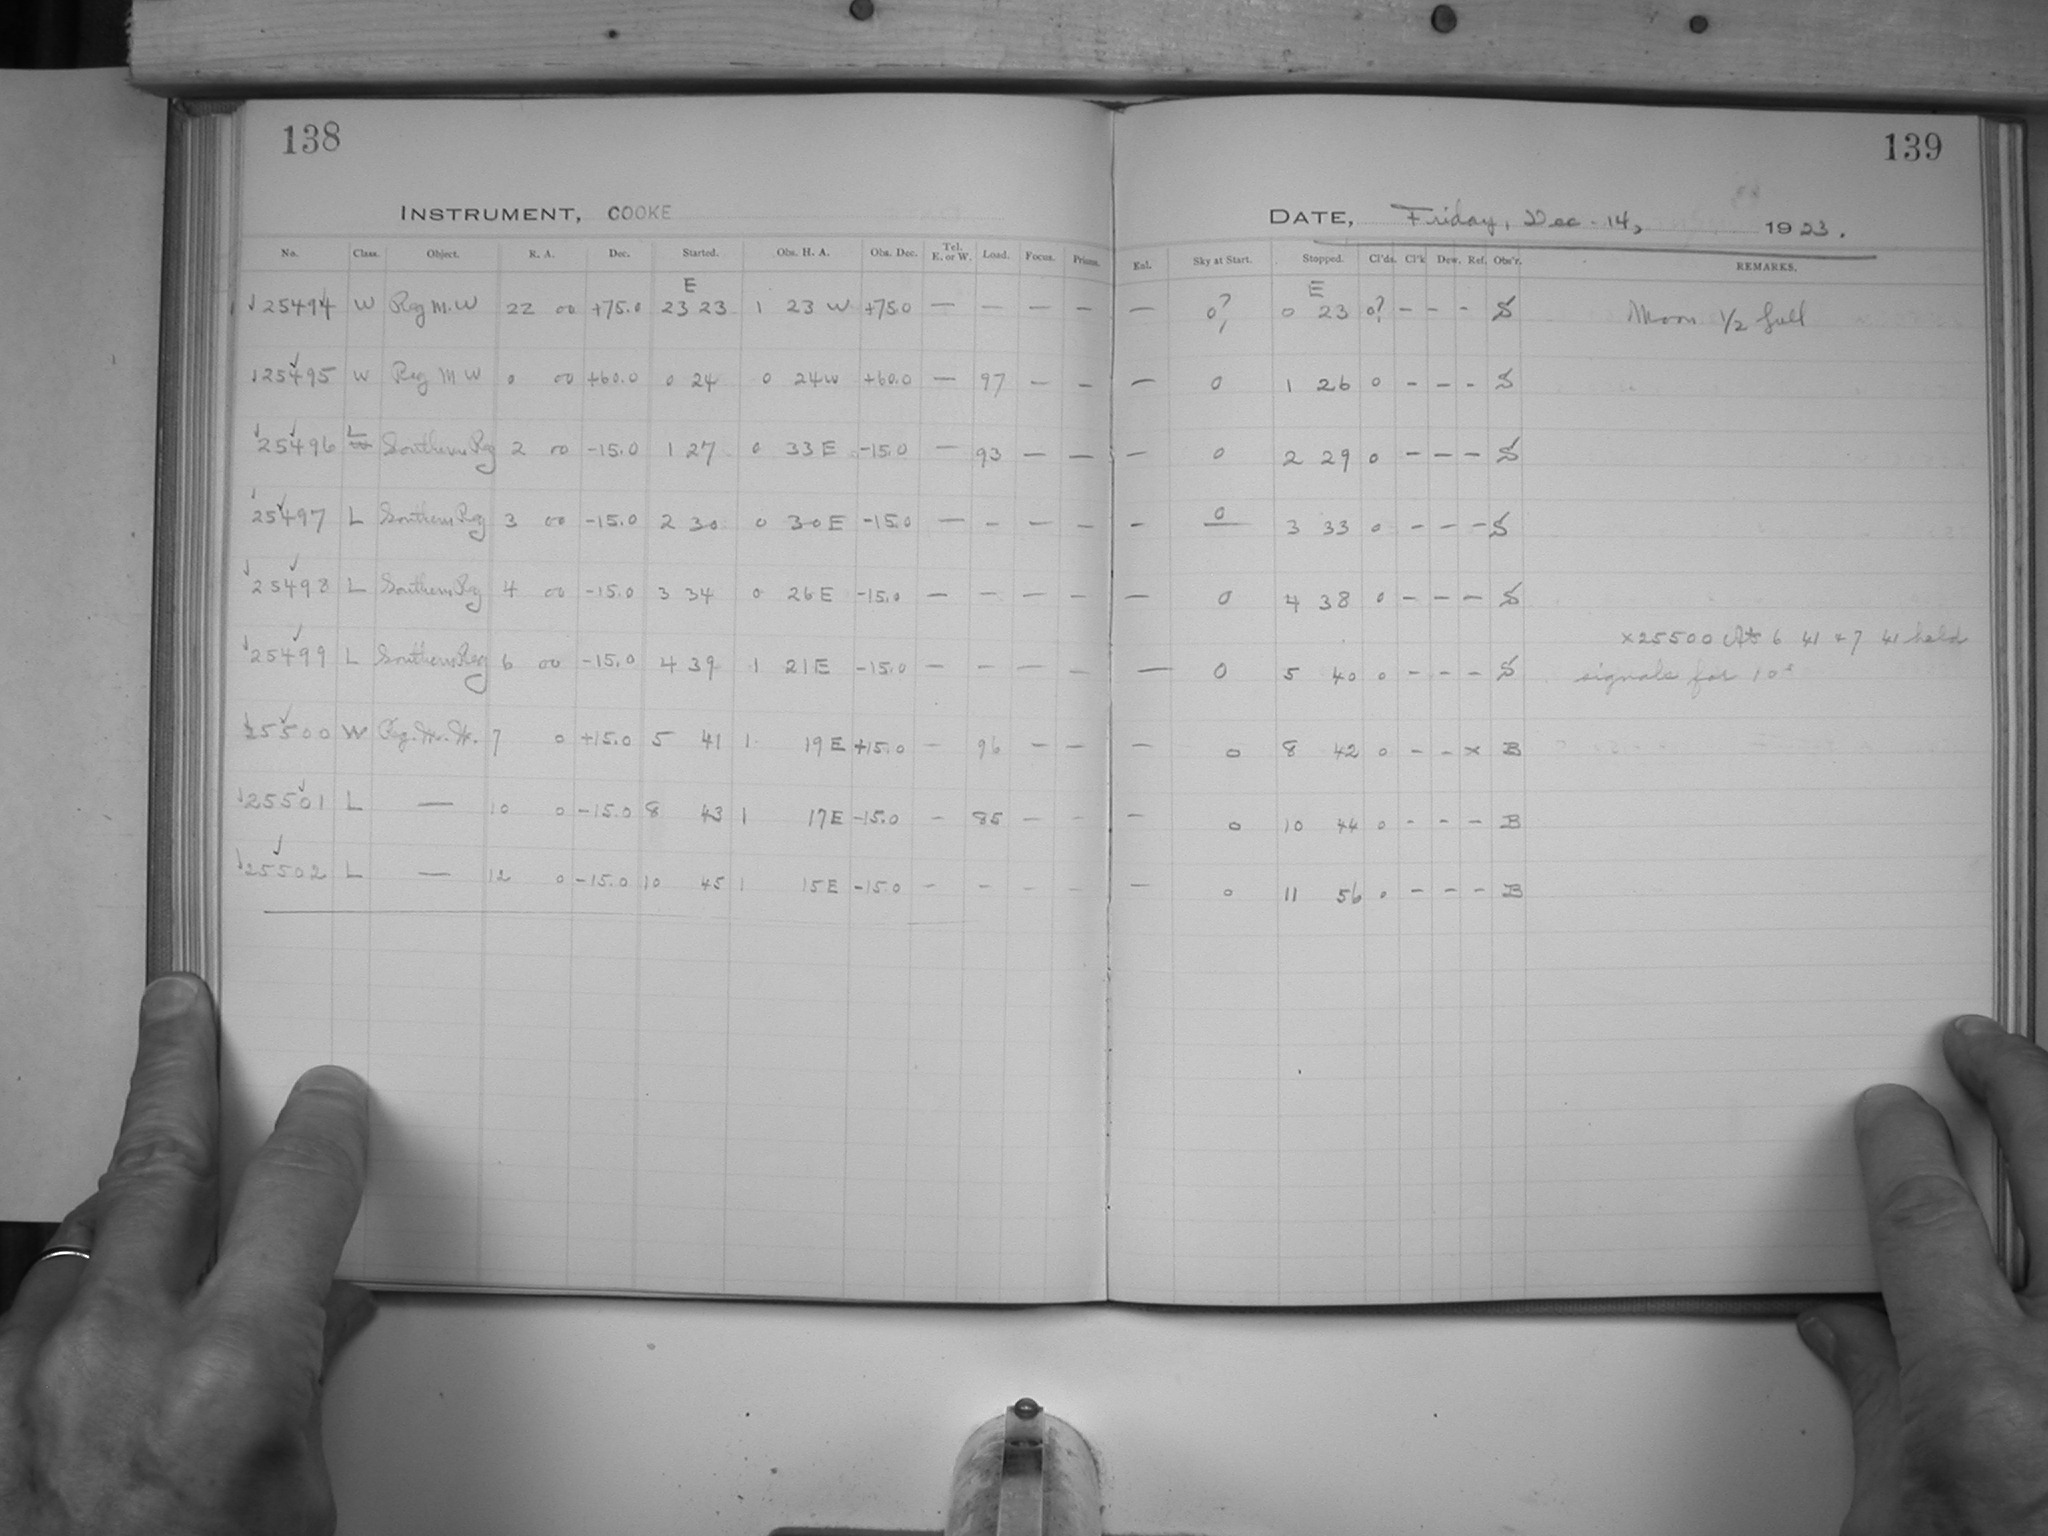 138
INSTRUMENT, COOKE
No. Class. Object. R. A. Dec. Started. Obs. H. A. Obs. Dec. Tel. E. or W. Load. Focus. Prisms.
E
25494 W Reg M.W 22 00 +75.0 23 23 1 23 W +75.0 — — — —
25495 W Reg M W 0 00 +60.0 0 24 0 24 W +60.0 — 97 — —
25496 L Southern Reg 2 00 -15.0 1 27 0 33 E -15.0 — 93 — —
25497 L Southern Reg 3 00 -15.0 2 30 0 30 E -15.0 — — — —
25498 L Southern Reg 4 00 -15.0 3 34 0 26 E -15.0 — — — —
25499 L Southern Reg 6 00 -15.0 4 39 1 21 E -15.0 — — — —
25500 W Reg. M. W. 7 0 +15.0 5 41 1 19 E +15.0 — 96 — —
25501 L — 10 0 -15.0 8 43 1 17 E -15.0 — 85 — —
25502 L — 12 0 -15.0 10 45 1 15 E -15.0 — — — —
139
DATE, Friday, Dec. 14, 1923.
Enl. Sky at Start. Stopped. Cl'ds. Cl'k Dew. Ref. Obs'r. REMARKS.
E
— 0? 0 23 0? — — — S Moon 1/2 full
— 0 1 26 0 — — — S
— 0 2 29 0 — — — S
— 0 3 33 0 — — — S
— 0 4 38 0 — — — S
x25500 At 6 41 + 7 41 held
— 0 5 40 0 — — — S signals for 10s
— 0 8 42 0 — — x B
— 0 10 44 0 — — — B
— 0 11 56 0 — — — B